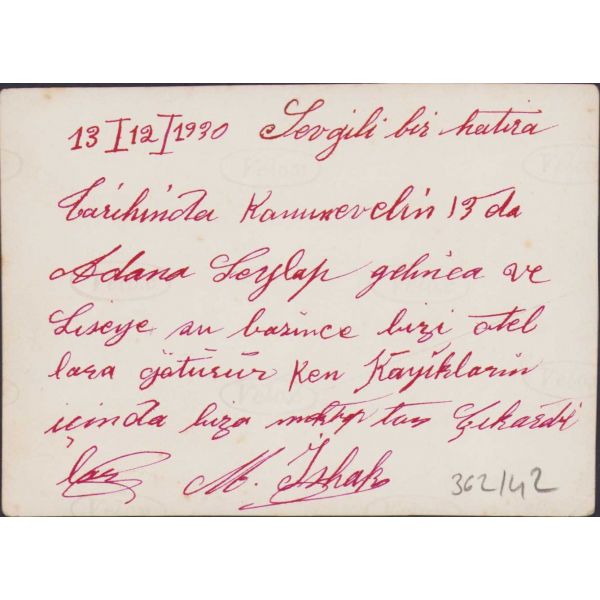 13 I 12 I 1930 Sevgili bir hatıra
tarihinda Kanunevelin 13 da
Adana Seylap gelinca ve
Liseye su basınce bizi otel
lara götürür ken Kayikların
içinda biza mektep tan Çıkardı
lar M. İshak 362/42